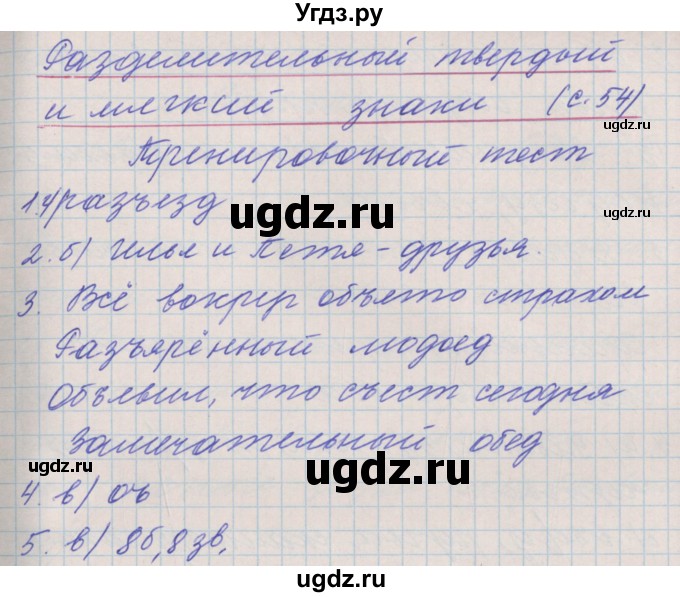 Угдз.ру
Разделительный твердый
и мягкий знаки (с. 54)
ugdz.ru
Тренировочный тест
ugdz.ru
ugdz.ru
1. разъезд
ugdz.ru
2. б) Илья и Петя - друзья.
3. Всё вокруг объято страхом
Разъярённый людоед
ugdz.ru
Объявил, что съест сегодня
Замечательный обед
ugdz.ru
ugdz.ru
ugdz.ru
4. в) оъ
5. в) 8б, 8 зв.
ugdz.ru